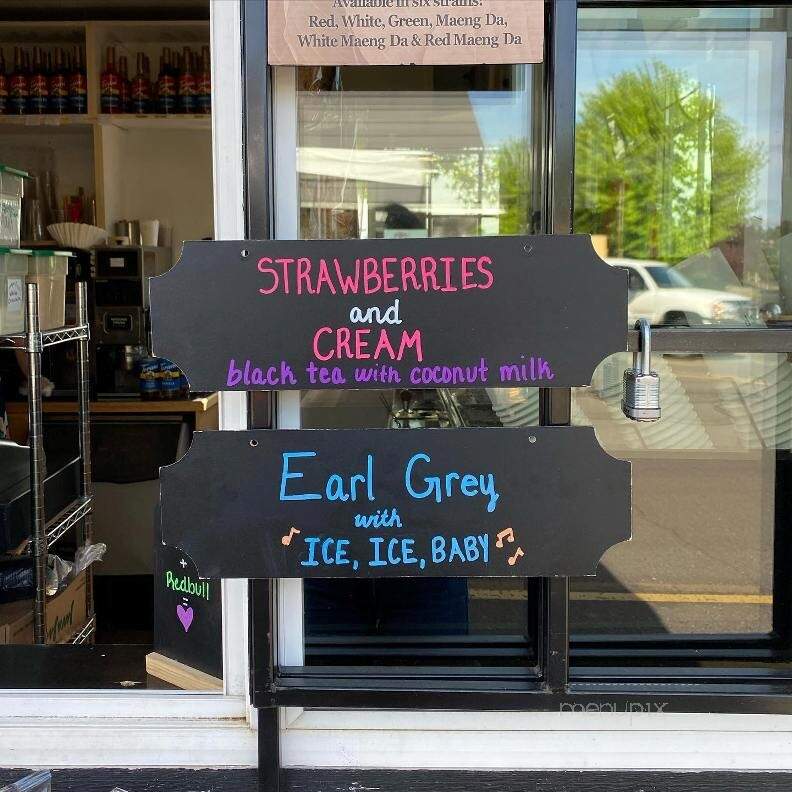 Available in six strains:
Red, White, Green, Maeng Da,
White Maeng Da & Red Maeng Da
STRAWBERRIES
and
CREAM
black tea with coconut milk
Earl Grey
with
ICE, ICE, BABY
+
Redbull
=
menupix